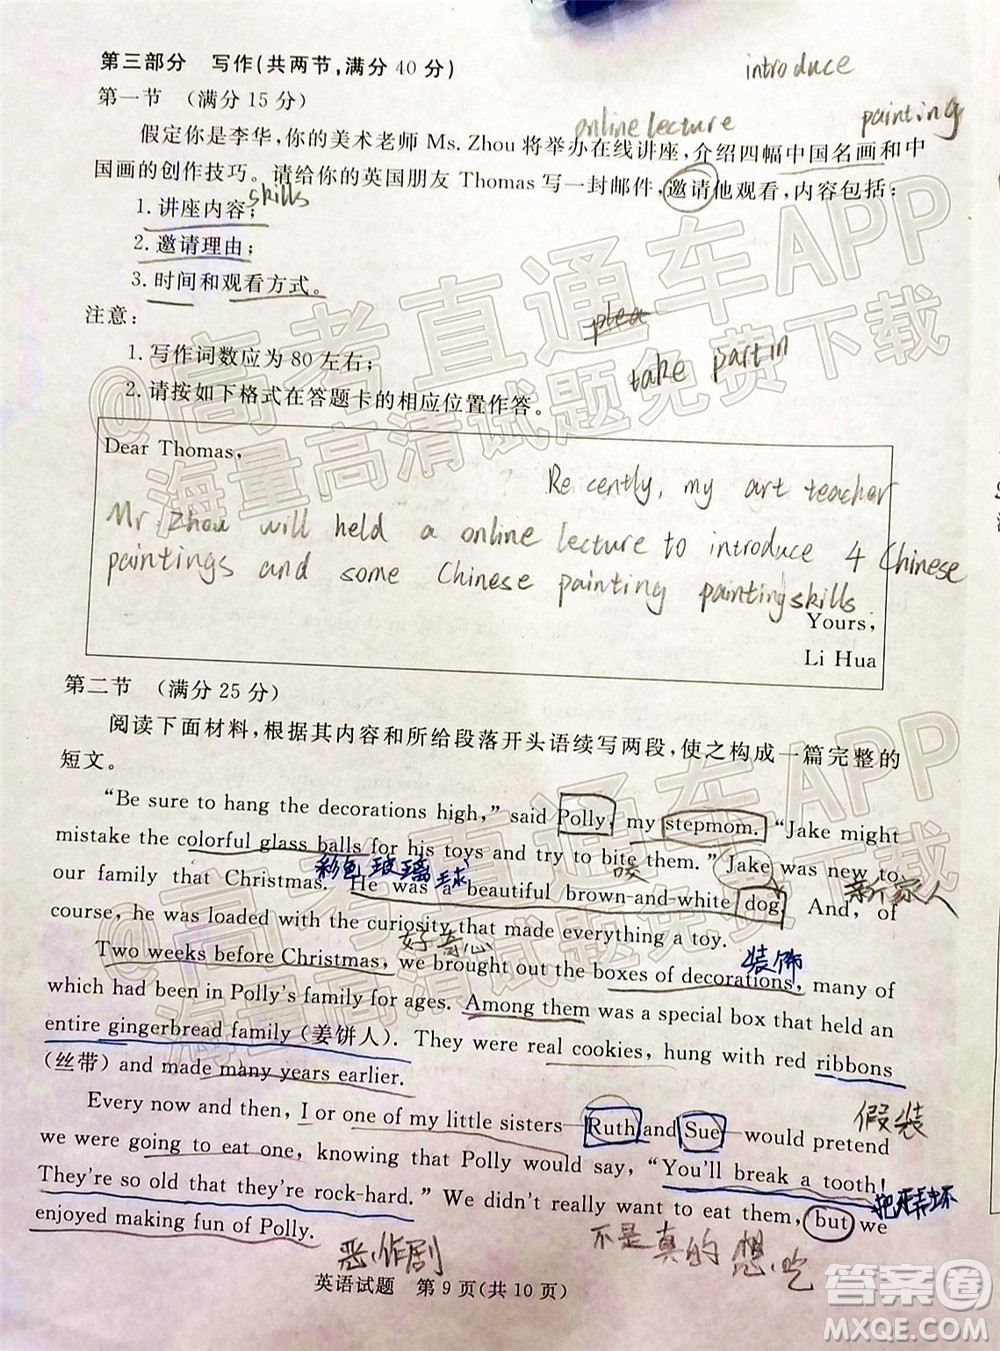 第三部分 写作(共两节,满分40分)
introduce
第一节 (满分15分)
online lecture painting
假定你是李华,你的美术老师 Ms. Zhou 将举办在线讲座,介绍四幅中国名画和中
国画的创作技巧。请给你的英国朋友 Thomas 写一封邮件,邀请他观看,内容包括:
skills
1. 讲座内容;
2. 邀请理由;
3. 时间和观看方式。
注意:
plea
1. 写作词数应为 80 左右;
take part in
2. 请按如下格式在答题卡的相应位置作答。
Dear Thomas,
Recently, my art teacher
Mr. Zhou will held a online lecture to introduce 4 Chinese
paintings and some Chinese painting painting skills.
Yours,
Li Hua
第二节 (满分25分)
阅读下面材料,根据其内容和所给段落开头语续写两段,使之构成一篇完整的
短文。
“Be sure to hang the decorations high,” said Polly, my stepmom. “Jake might
mistake the colorful glass balls for his toys and try to bite them.” Jake was new to
彩色玻璃球 咬 新家人
our family that Christmas. He was a beautiful brown-and-white dog. And, of
course, he was loaded with the curiosity that made everything a toy.
好奇心 装饰
Two weeks before Christmas, we brought out the boxes of decorations, many of
which had been in Polly’s family for ages. Among them was a special box that held an
entire gingerbread family (姜饼人). They were real cookies, hung with red ribbons
(丝带) and made many years earlier.
假装
Every now and then, I or one of my little sisters—Ruth and Sue—would pretend
we were going to eat one, knowing that Polly would say, “You’ll break a tooth!
They’re so old that they’re rock-hard.” We didn’t really want to eat them, but we
把牙弄坏
enjoyed making fun of Polly.
恶作剧 不是真的想吃
英语试题 第9页(共10页)
@高考直通车APP
海量高清试题免费下载
@高考直通车APP
海量高清试题免费下载
答案圈
MXQE.COM